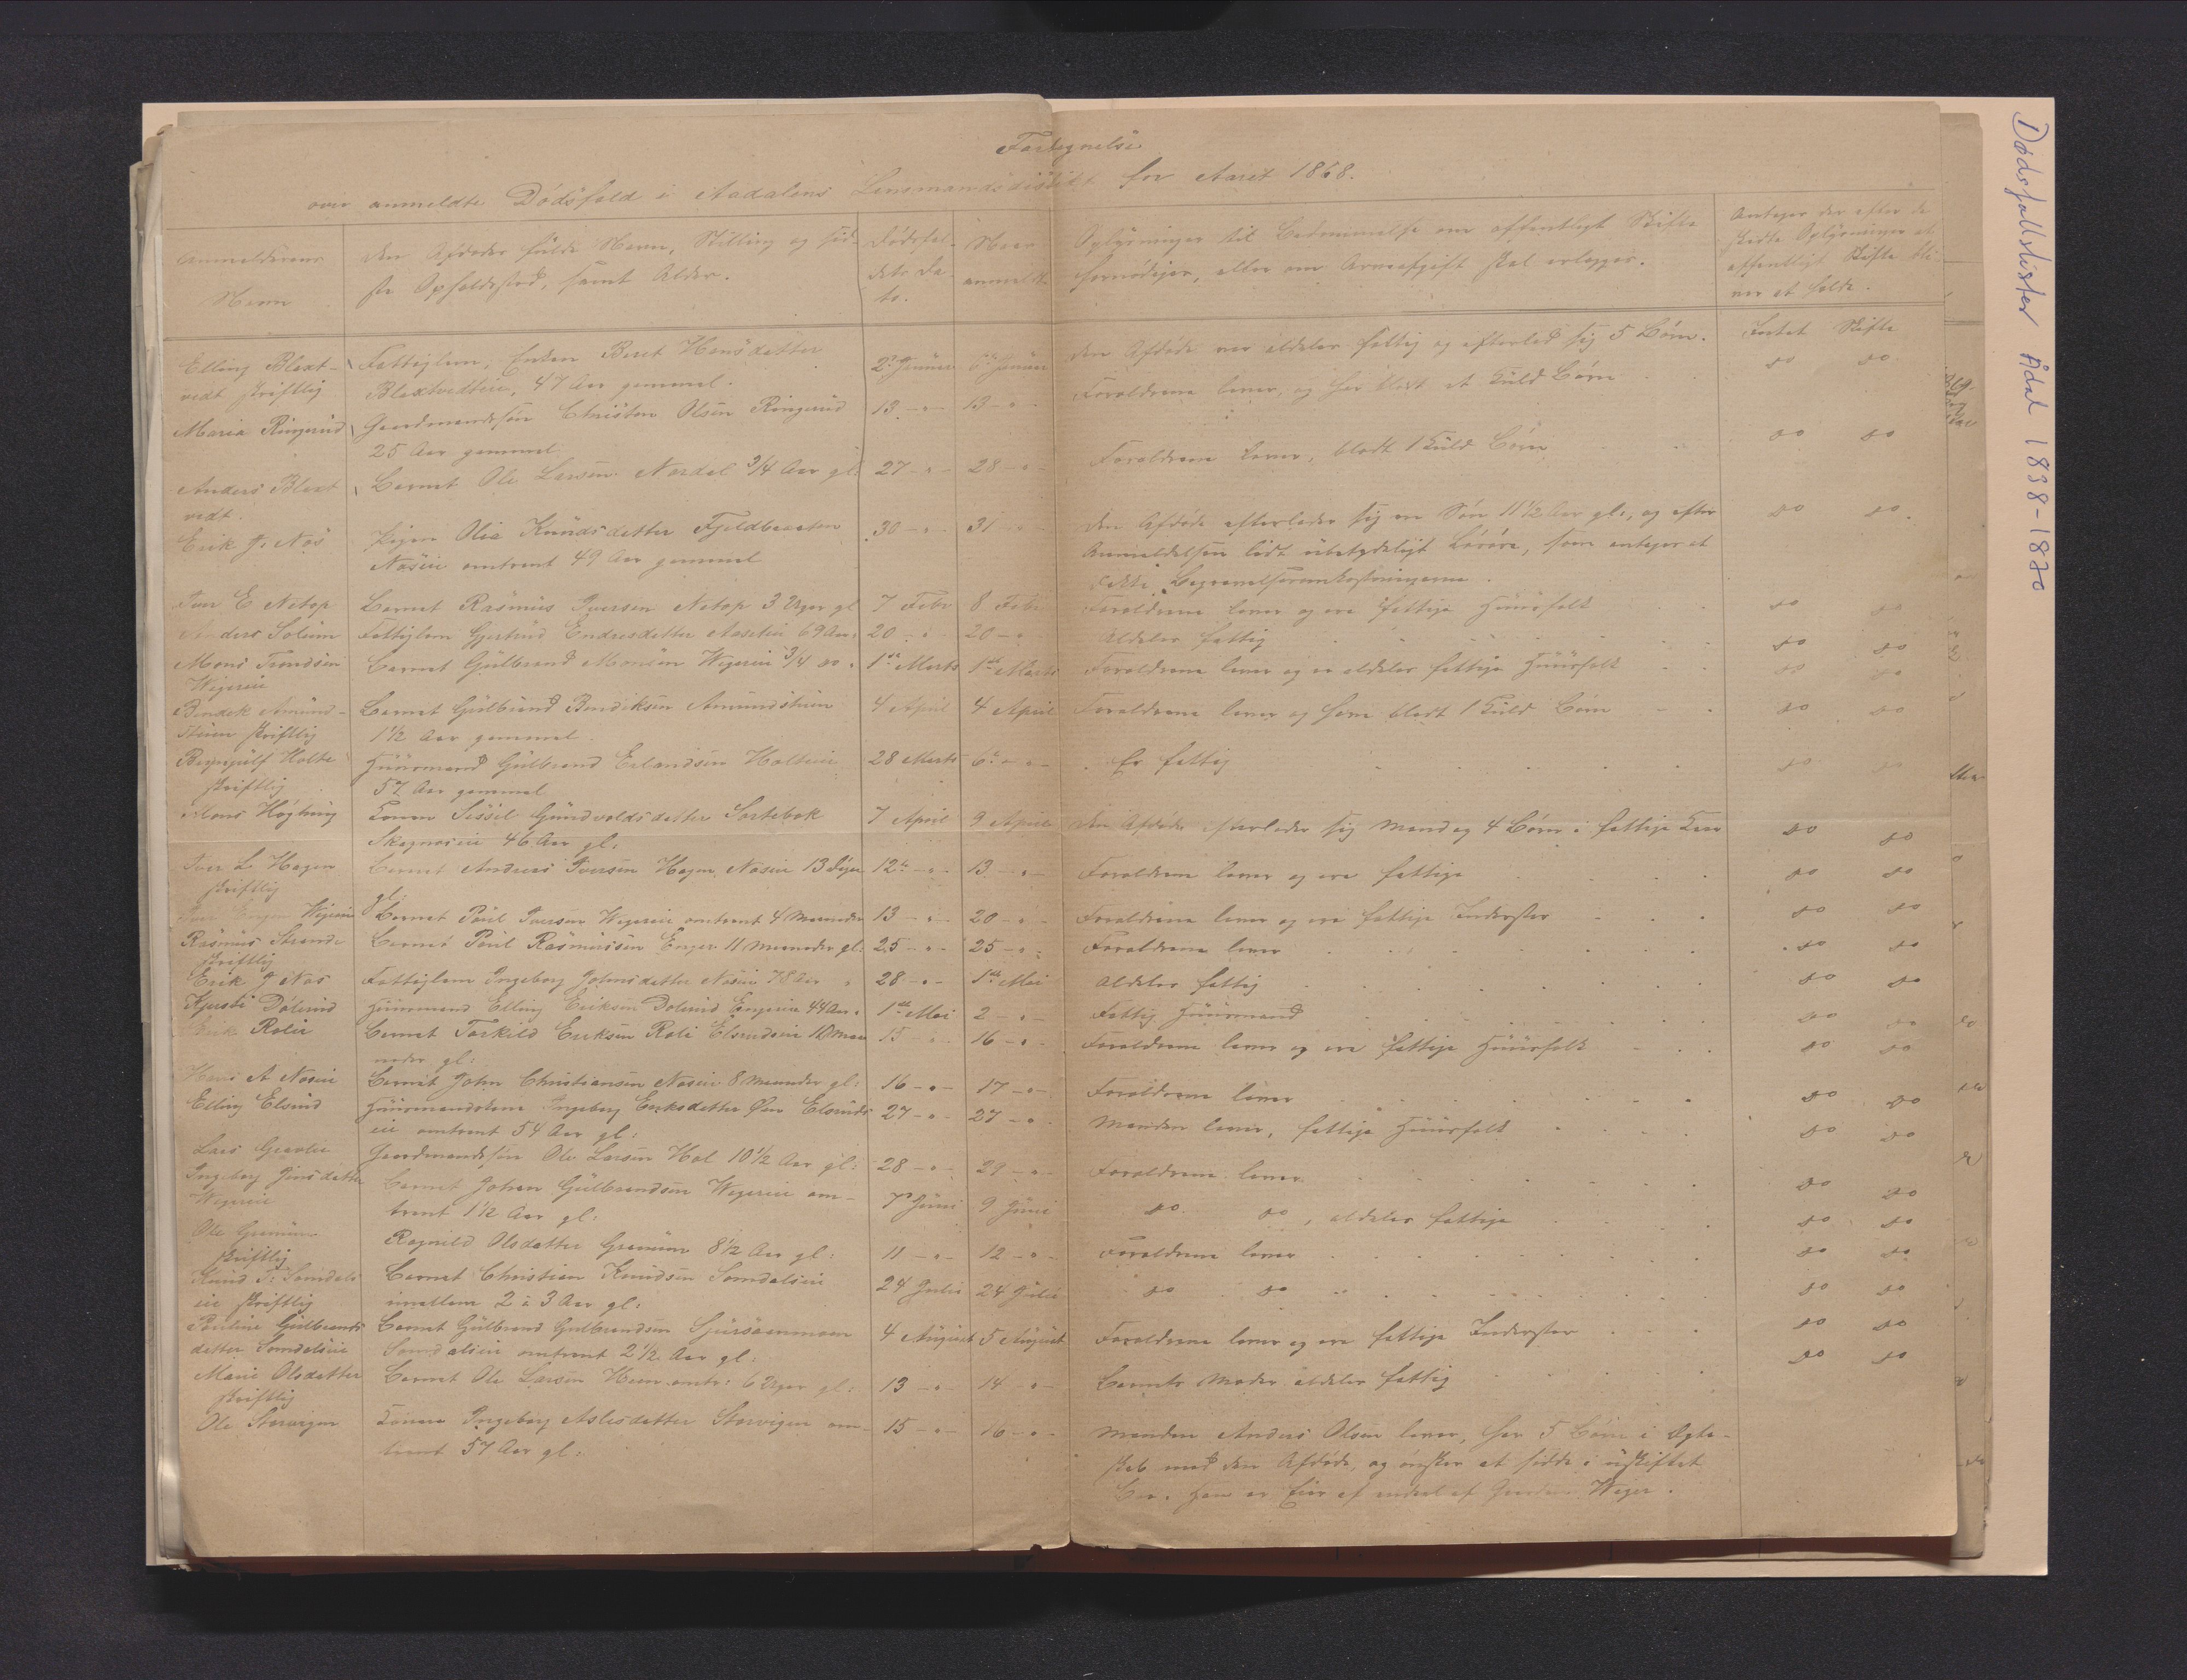 Fortegnelse
over anmeldte Dødsfald i Aadalens Lensmandsdistrikt for Aaret 1868.
Anmelderens Navn
Den Afdødes fulde Navn, Stilling og sidste Opholdssted, samt Alder.
Dødsfaldets Dato.
Naar anmeldt
Oplysninger til Bedømmelse om offentligt Skifte
fornødiges, eller om Arveafgift skal erlægges.
Antages der efter de
skedte Oplysninger at
offentligt Skifte bliver at holde.
Elling Blaxtvedt skriftlig
Fattiglem, Enken Beret Hansdatter
Blaxtvedteie, 47 Aar gammel.
2den Januar
6te Januar
Den Afdøde var aldeles fattig og efterlod sig 5 Børn.
Intet Skifte
Maria Ringerud
Gaardmandssøn Christen Olsen Ringerud
25 Aar gammel
13 - " -
13 - " -
Forældrene lever, og har blot et Kuld Børn
do do
Anders Blaxtvedt.
Barnet Ole Larsen Nærdal 3/4 Aar gl:
27 - " -
28 - " -
Forældrene lever, blodt 1 Kuld Børn
do do
Erik J. Næs
Pigen Olia Knudsdatter Fjeldbraaten
Næseie omtrent 49 Aar gammel
30 - " -
31 - " -
Den Afdøde efterlader sig en Søn 11 1/2 Aar gl., og efter
Anmeldelsen lidt ubetydeligt Løsøre, som antages at
dække Begravelsesomkostningerne.
do do
Iver E Netop
Barnet Rasmus Iversen Netop 3 Uger gl
7 Febr
8 Febr
Forældrene lever og ere fattige Huusfolk
do do
Anders Solum
Fattiglem Gjertrud Endresdatter Aaseteie 69 Aar
20 - " -
20 - " -
Aldeles fattig
do do
Mons Trondsen
Wigereie
Barnet Gulbrand Monsen Wigereie 3/4 do.
1ste Marts
1ste Marts
Forældrene lever og er aldeles fattige Huusfolk
do do
Bendik Amundstuen skriftlig
Barnet Gulbrand Bendiksen Amundstuen
1 1/2 Aar gammel
4 April
4 April
Forældrene lever og have blodt 1 Kuld Børn
do do
Bryngulf Holte
skriftlig
Huusmand Gulbrand Erlandsen Holteeie
57 Aar gammel
28 Marts
6te - " -
Er fattig
do do
Mons Høghaug
Konen Sissel Gundvoldsdatter Sortebæk
Skagnæseie 46 Aar gl.
7 April
9 April
Den Afdøde efterlader sig Mand og 4 Børn i fattige Kaar
do do
Iver L. Hagen
skriftlig
Barnet Andreas Iversen Hagen Næseie 13 Dage
gl.
12te - " -
13 - " -
Forældrene lever og ere fattige
do do
Wigereie
Barnet Paul Iversen Wigereie omtrent 4 Maaneder
13 - " -
20 - " -
Forældrene lever og ere fattige Inderster
do do
Rasmus Strande
skriftlig
Barnet Paul Rasmussen Enger 11 Maaneder gl.
25 - " -
25 - " -
Forældrene lever
do do
Erik J Næs
Fattiglem Ingeborg Johnsdatter Næseie 78 Aar "
28 - " -
1ste Mai
Aldeles fattig
do do
Kjersti Dølerud
Huusmand Elling Eriksen Dølerud Engereie 44 Aar.
1ste Mai
2 - " -
Fattig Huusmand
do do
Erik Rolie
Barnet Torkild Eriksen Roli Elsrudeie 10 Maaneder gl:
15 - " -
16 - " -
Forældrene lever og ere fattige Huusfolk
do do
Hans A Næseie
Barnet John Christiansen Næseie 8 Maaneder gl:
16 - " -
17 - " -
Forældrene lever
do do
Elling Elsrud
Huusmandskone Ingeborg Eriksdatter Øen Elsrudseie omtrent 54 Aar gl:
27 - " -
27 - " -
Manden lever, fattige Huusfolk
do do
Lars Gravlie
Gaardmandssøn Ole Larsen Hol 10 1/2 Aar gl:
28 - " -
29 - " -
Forældrene lever
do do
Ingeborg Jensdatter
Wigereie
Barnet Johan Gulbrandsen Wigereie omtrent 1 1/2 Aar gl:
7de Juni
9 Juni
do do, aldeles fattige
do do
Ole Granum
skriftlig
Ragnild Olsdatter Granum 8 1/2 Aar gl:
11 - " -
12 - " -
Forældrene lever
do do
Knud T. Somdalseie skriftlig
Barnet Christian Knudsen Somdalseie
imellem 2 à 3 Aar gl:
24 Julii
24 Julii
do do
do do
Pauline Gulbrandsdatter Somdalseie
Barnet Gulbrand Gulbrandsen
Somdalseie omtrent 2 1/2 Aar gl:
4 August
5 August
Forældrene lever og ere fattige Inderster
do do
Marie Olsdatter
skriftlig
Barnet Ole Larsen Heen omtr: 6 Uger gl:
13 - " -
14 - " -
Barnets Moder aldeles fattig
do do
Ole Storvigen
Konen Ingeborg Aslesdatter Storvigen omtrent 57 Aar gl:
15 - " -
16 - " -
Manden Anders Olsen lever, har 5 Børn i Ægteskab med den Afdøde, og ønsker at sidde i uskiftet
Bo. Han er Eier af endeel af Gaarden Wager.
Dødsfallslister Ådal 1838-1870